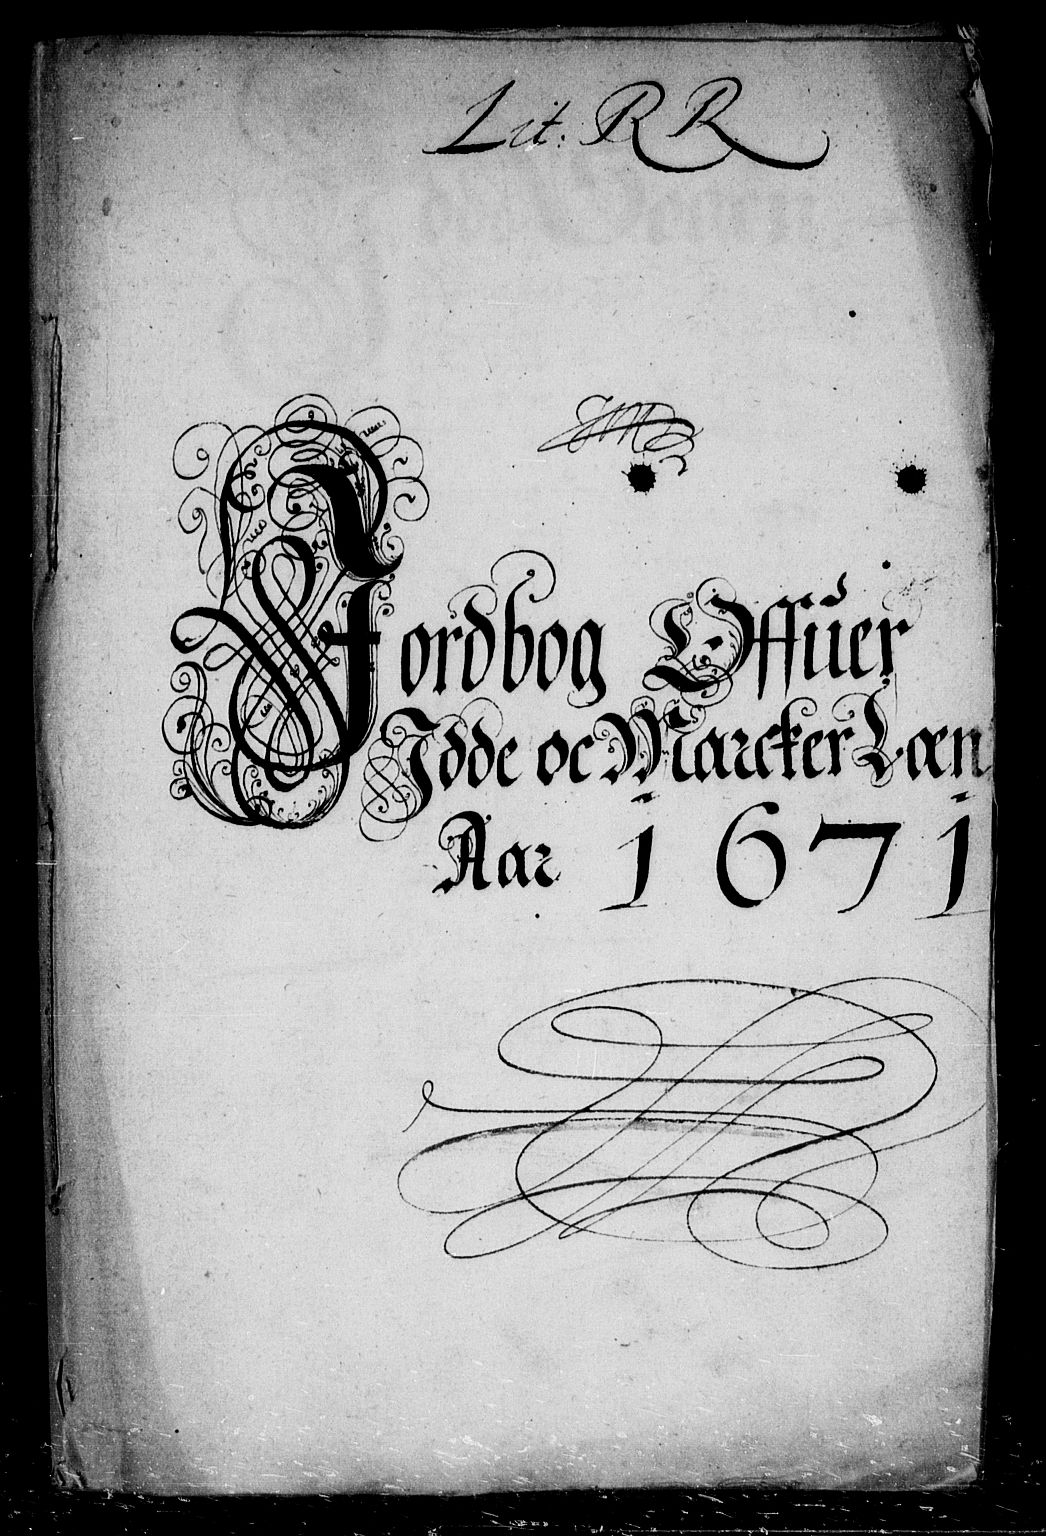 Lit. RR
Jordbog Offuer
Idde oc Marcker Læn
Aar 1671